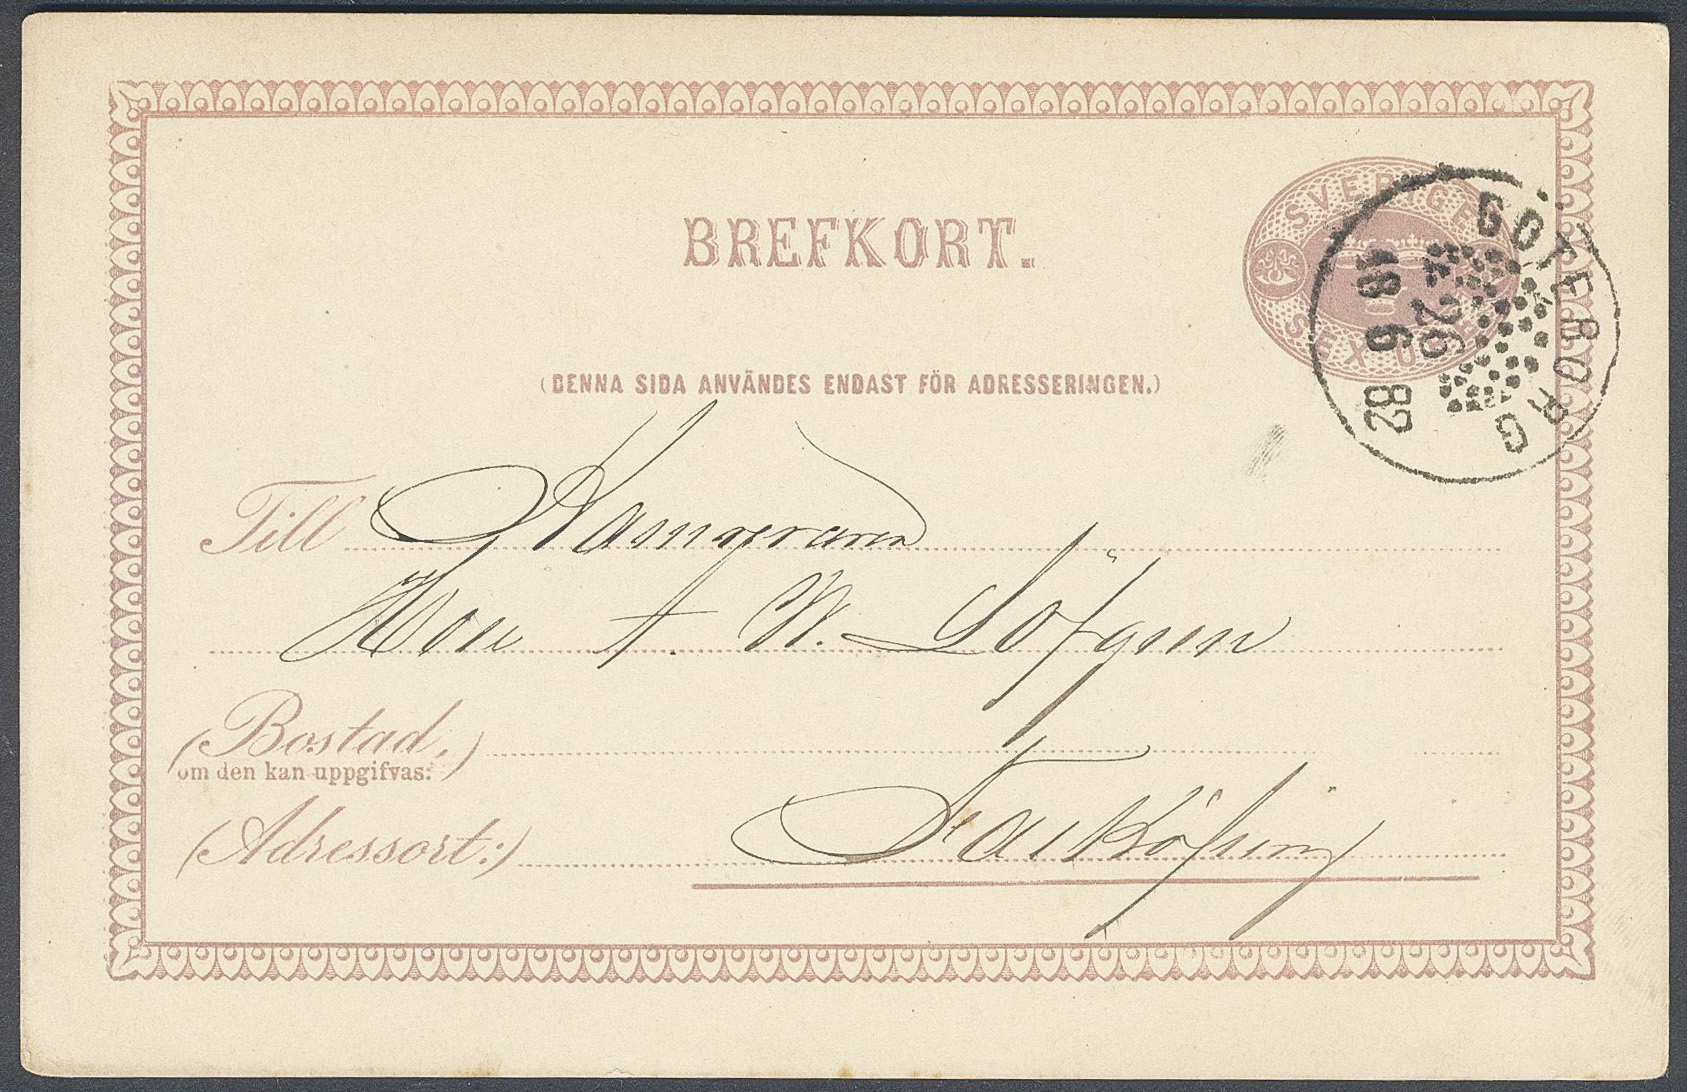 BREFKORT.
SVERIGE
SEX ÖRE
GÖTEBORG
18 6 82
26
(DENNA SIDA ANVÄNDES ENDAST FÖR ADRESSERINGEN.)
Till Kamreraren
Herr A. W. Löfgren
(Bostad,)
om den kan uppgifvas:
(Adressort:) Falköping